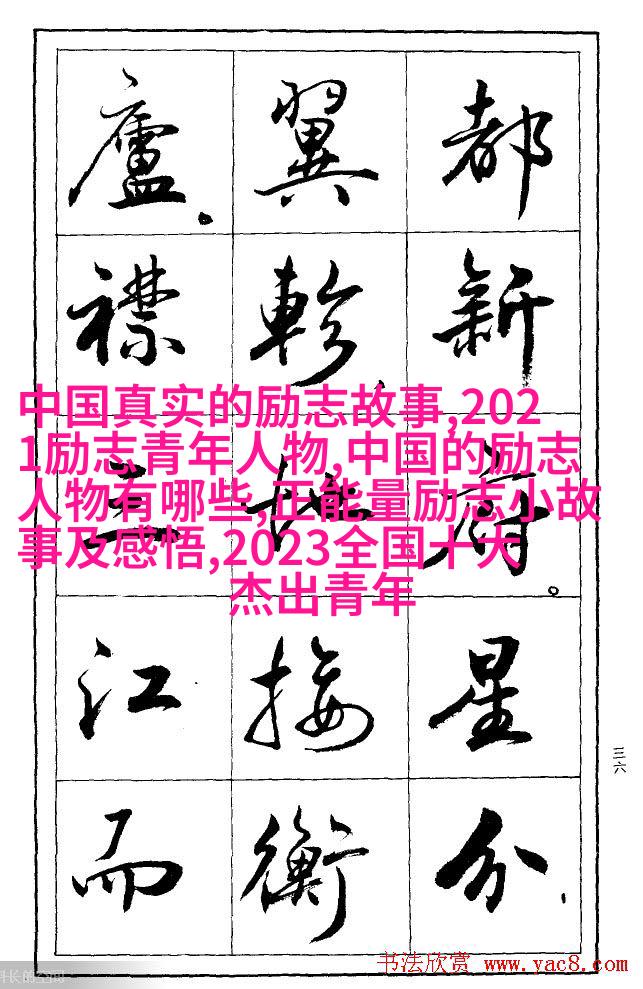 都新府。星分
翼軫、地接衡
廬。襟三江而
中国真实的励志故事,202
1励志青年人物,中国的励志
人物有哪些,正能量励志小故
事及感悟,2023全国十大
杰出青年
三六
书法欣赏 www.yac8.com
长的空间